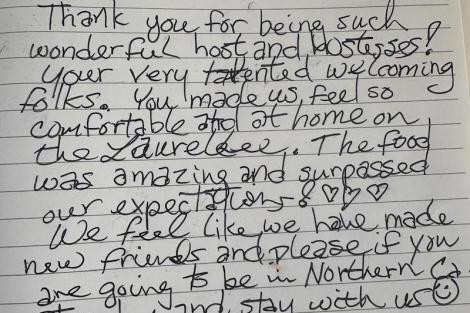 Thank you for being such
wonderful host and hostesses!
Your very talented welcoming
folks. You made us feel so
comfortable and at home on
the Laurelee. The food
was amazing and surpassed
our expectations! ♡♡♡
We feel like we have made
new friends and please if you
are going to be in Northern Ca.
and stay with us ☺